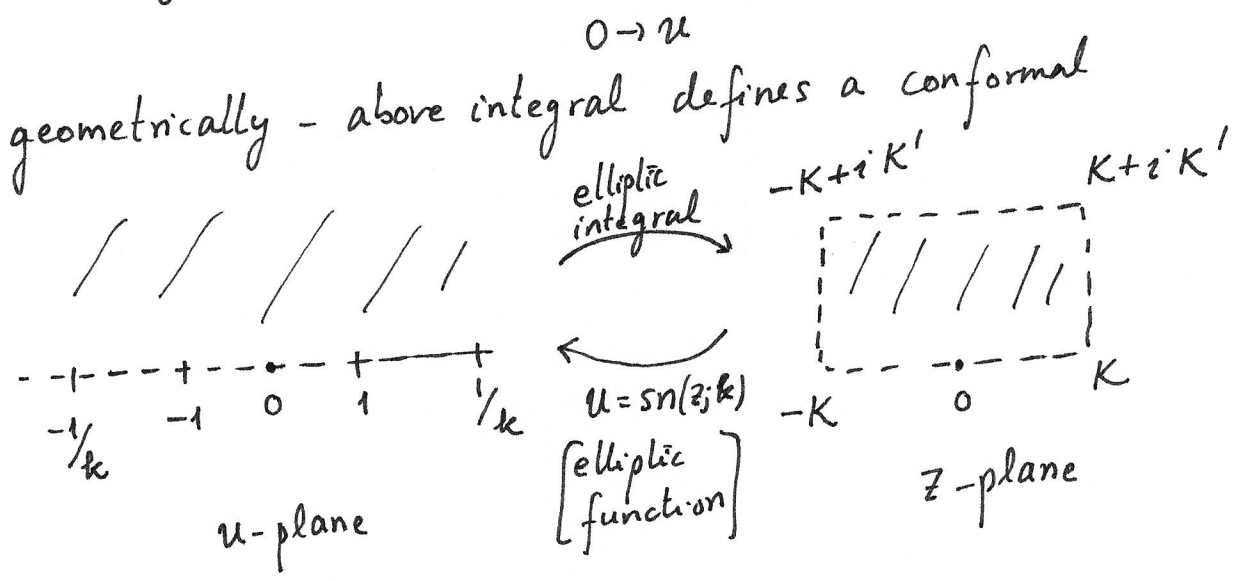 0→u
geometrically - above integral defines a conformal
elliptic
integral
-K+iK'
K+iK'
-1/k
-1
0
1
1/k
u=sn(z;k)
[elliptic
function]
-K
0
K
u-plane
z-plane